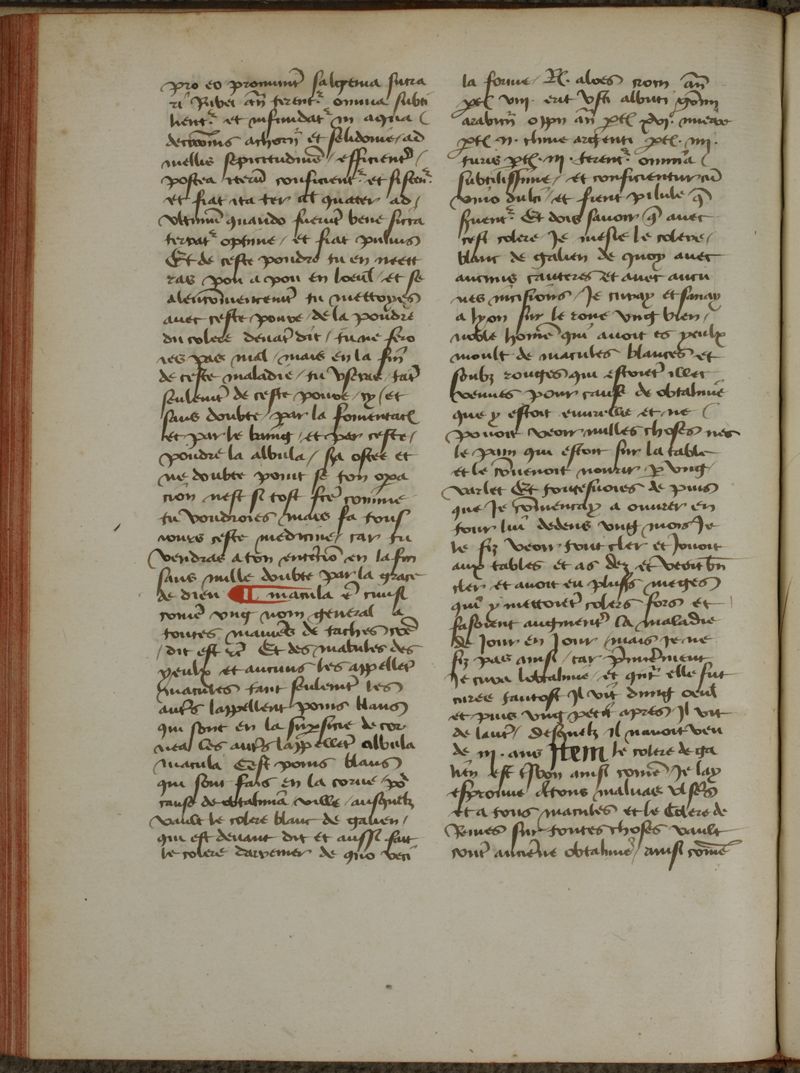 pro eo promunt̃ salgema sucra
ri rubei añ terent᷑ omnia subti
lient᷑ et infundat᷑ in aqua
et selidonie / ad
mellis spissitudinẽ / efficient᷑ /
postea iterũ conficient᷑ et
et fiat ita ter at quater ad /
Ultimũ quando fuerit bene sicca
terat᷑ optime / et fiat pulvis
Et de ceste pouldre tu en mett
ras pou a pou en loeul / et se
tu nettoyes
avec ceste poudre / de la pouldre
du colere devãt dit / tu ne fero
ies pas mal / mais en la fin
de ceste maladie / tu useras / tãt
seullemt̃ de ceste poudre / cy / et
sans doubte / par la fomentacõ
et par le baing / et par ceste /
pouldre la albula / sa ostee et
ne doubte point se ton opa
cion nest si tost fcẽ comme
tu vouldroies mais fa tous
iours ceste medicine / car tu
vendras a ton entẽcio en la fin
sans nulle doubte par la grace
de dieu macula ẽ
comẽ ung nom general a
toutes manieres de taches
dit est Et des mabules des
yeulx et aucuns les appellẽt
macules tant seulemt̃ les
autẽs lappellent poins blans
qui sont en la supficie de cor
nea les autẽs lappellẽt albula
macula Cest poins blans
qui sont fais en la cornee /
cause de obtalmia vielle / ausquelz
vault le colere blanc de galien /
qui est devant dit et aussi fait
le colere darpemer de quo veci
la forme / R. aloes crocu añ
viii.
arabicũ oppii añ
argenti iiii.
turis iii. terent᷑ omnia
subtilissime / et conficientur cũ
vino dulci / et fient pilule q̃
servent᷑ Et dois savoir q̃ avec
cest colere Je mesle le colere /
blanc de galien de quoy avec
aucuns cauteres et avec aucu
nes incisions / Je curay et sanay
a lyon sur le rone ung bien /
noble home qui avoit es yeulx
moult de macules blances et
soubz rouges qui estoiet illec
venues pour cause de obtalmie
que y estoit envieillie et ne
povoit veoir nulles choses nes
le pain qui estoit sur la table
et le cõvenoit nourir p ung
varlet Et toutesvoies de puis
que Je cõmencay a ouvrer en
tour lui dedens ung mois Je
le fiz veoir tout cler et Jouoit
aux tables et as dez et veoit bñ
cler / et avoit eu plus̃s meges
qui y mettoiet colers fors et
fasoient augmentẽr la maladie
de Jour en Jour / mais Je ne
fiz pas ainsi / car p̃mieremẽt
Je cura lobtalmie / et quãt elle fut
curee tantost Il vit dung oeul
et puis ung petit apres Il vit
de lautr̃ / desquelz Il navoit veu
de iii. ans Item le colere de ga
lien est bon ainsi comẽ Je lay
esprouve a tous malvais
et a tous macules et le Colere de
Rennes sur toutes choses vault
contr̃ anciẽne obtalmie / ainsi comẽ